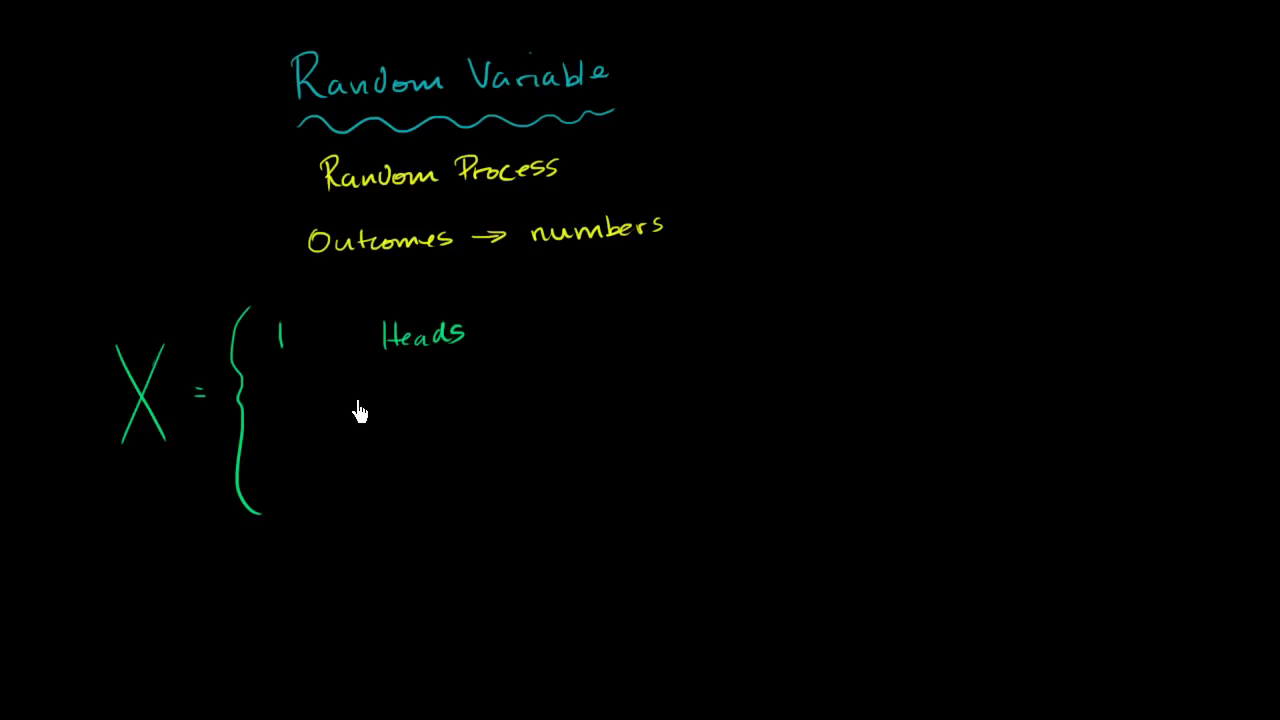 Random Variable
Random Process
Outcomes → numbers
X = { 1 Heads